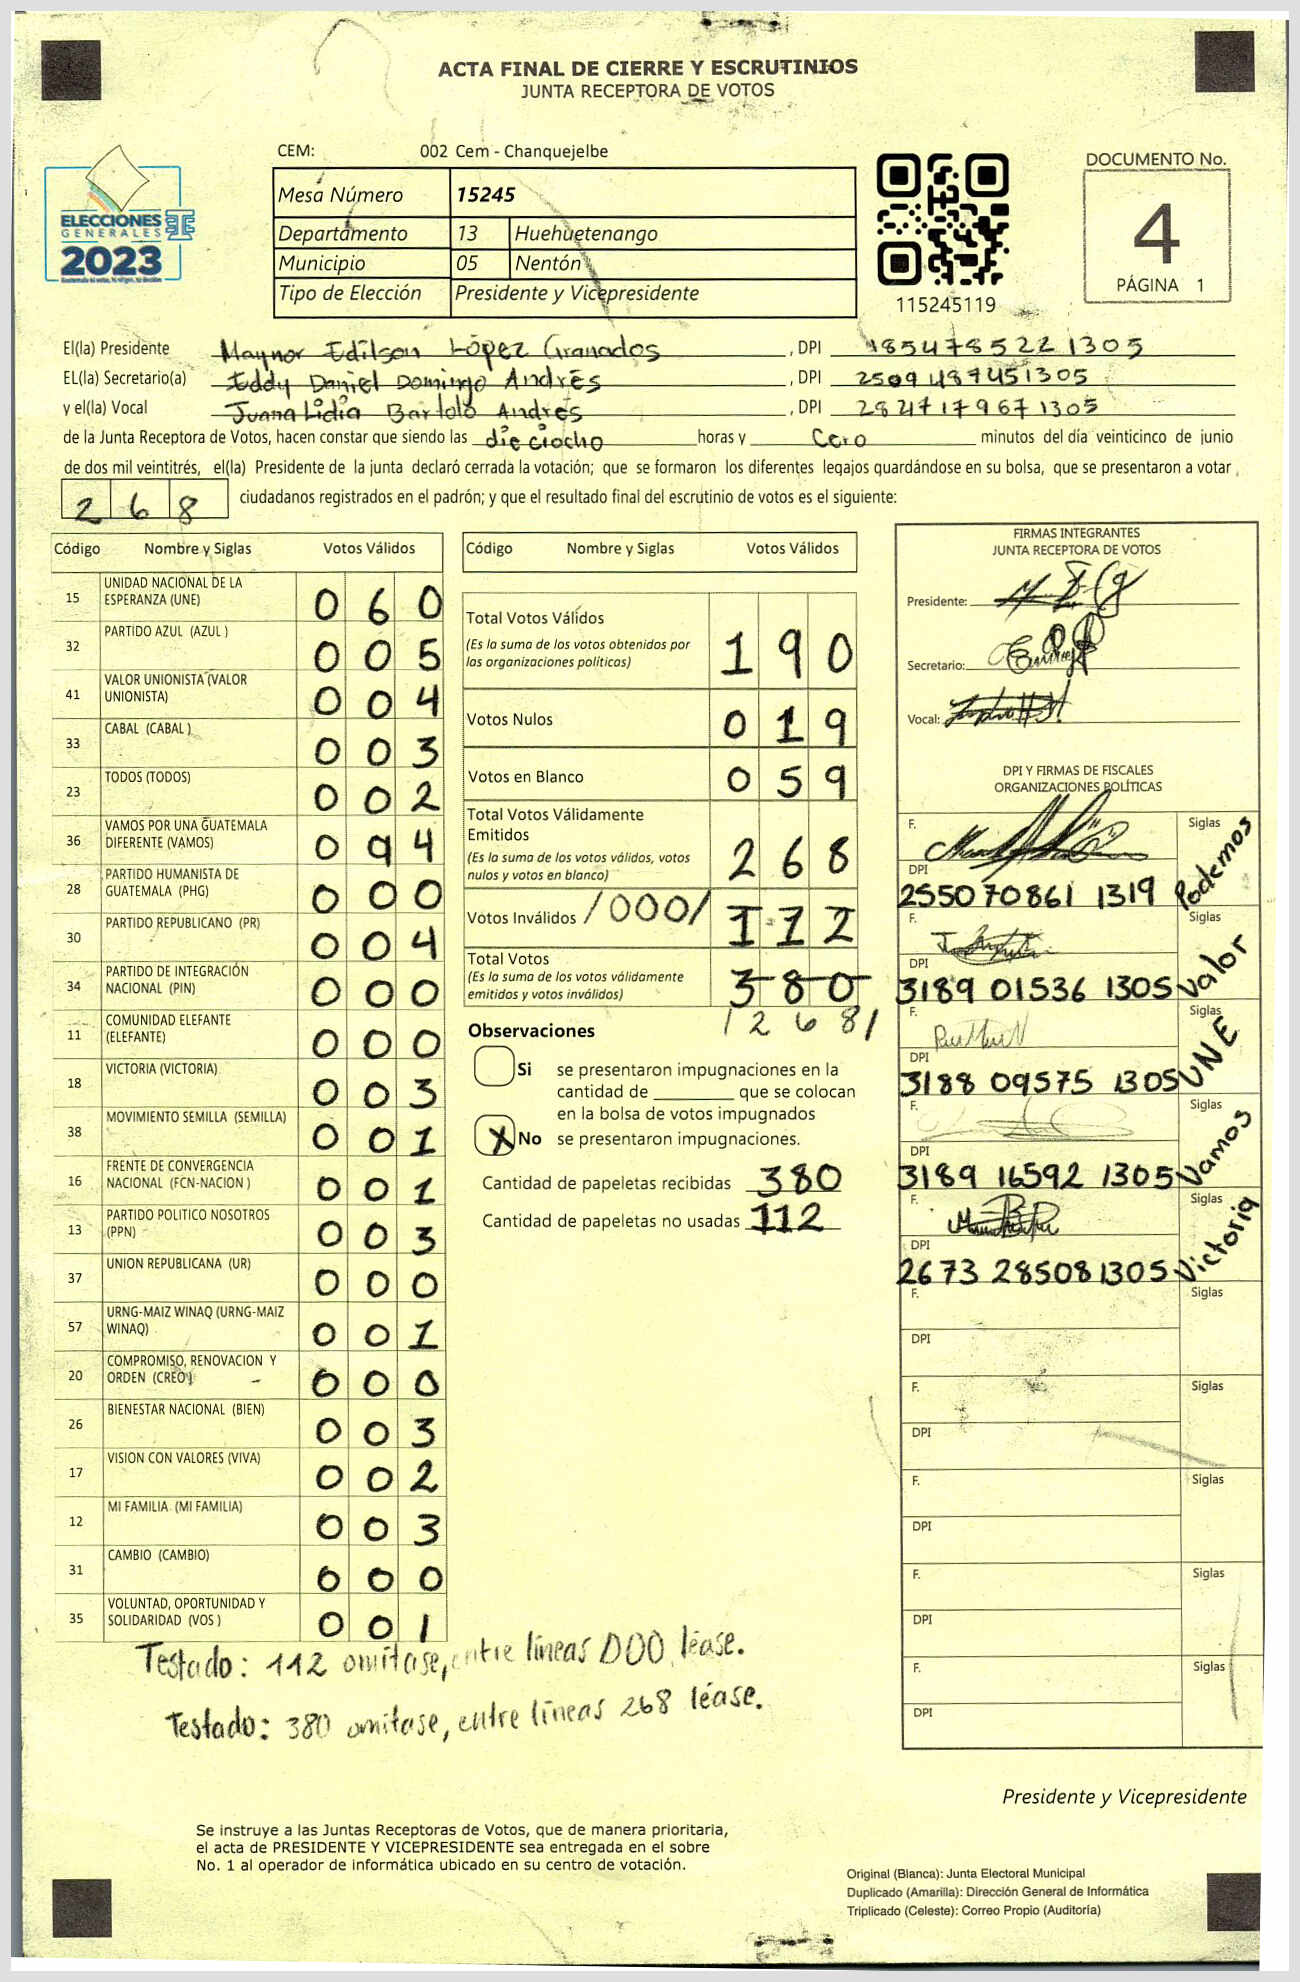 ACTA FINAL DE CIERRE Y ESCRUTINIOS
JUNTA RECEPTORA DE VOTOS
CEM: 002 Cem - Chanquejelbe
ELECCIONES
GENERALES
2023
Mesa Número 15245
Departamento 13 Huehuetenango
Municipio 05 Nentón
Tipo de Elección Presidente y Vicepresidente
115245119
DOCUMENTO No.
4
PÁGINA 1
El(la) Presidente Maynor Edilson López Granados , DPI 1854785221305
EL(la) Secretario(a) Eddy Daniel Domingo Andrés , DPI 2509487451305
y el(la) Vocal Juana Lidia Bartolo Andrés , DPI 2821717967 1305
de la Junta Receptora de Votos, hacen constar que siendo las dieciocho horas y cero minutos del día veinticinco de junio
de dos mil veintitrés, el(la) Presidente de la junta declaró cerrada la votación; que se formaron los diferentes legajos quardándose en su bolsa, que se presentaron a votar
268 ciudadanos registrados en el padrón; y que el resultado final del escrutinio de votos es el siguiente:
Código Nombre y Siglas Votos Válidos
15 UNIDAD NACIONAL DE LA ESPERANZA (UNE) 060
32 PARTIDO AZUL (AZUL ) 005
41 VALOR UNIONISTA (VALOR UNIONISTA) 004
33 CABAL (CABAL ) 003
23 TODOS (TODOS) 002
36 VAMOS POR UNA GUATEMALA DIFERENTE (VAMOS) 094
28 PARTIDO HUMANISTA DE GUATEMALA (PHG) 000
30 PARTIDO REPUBLICANO (PR) 004
34 PARTIDO DE INTEGRACIÓN NACIONAL (PIN) 000
11 COMUNIDAD ELEFANTE (ELEFANTE) 000
18 VICTORIA (VICTORIA) 003
38 MOVIMIENTO SEMILLA (SEMILLA) 001
16 FRENTE DE CONVERGENCIA NACIONAL (FCN-NACION ) 001
13 PARTIDO POLITICO NOSOTROS (PPN) 003
37 UNION REPUBLICANA (UR) 000
57 URNG-MAIZ WINAQ (URNG-MAIZ WINAQ) 001
20 COMPROMISO, RENOVACION Y ORDEN (CREO) 000
26 BIENESTAR NACIONAL (BIEN) 003
17 VISION CON VALORES (VIVA) 002
12 MI FAMILIA (MI FAMILIA) 003
31 CAMBIO (CAMBIO) 000
35 VOLUNTAD, OPORTUNIDAD Y SOLIDARIDAD (VOS ) 001
Código Nombre y Siglas Votos Válidos
Total Votos Válidos 190
(Es la suma de los votos obtenidos por
las organizaciones políticas)
Votos Nulos 019
Votos en Blanco 059
Total Votos Válidamente
Emitidos 268
(Es la suma de los votos válidos, votos
nulos y votos en blanco)
Votos Inválidos /000/ 112
Total Votos 380
(Es la suma de los votos válidamente
emitidos y votos inválidos)
/268/
Observaciones
Si se presentaron impugnaciones en la
cantidad de ________ que se colocan
en la bolsa de votos impugnados
X No se presentaron impugnaciones.
Cantidad de papeletas recibidas 380
Cantidad de papeletas no usadas 112
FIRMAS INTEGRANTES
JUNTA RECEPTORA DE VOTOS
Presidente:
Secretario:
Vocal:
DPI Y FIRMAS DE FISCALES
ORGANIZACIONES POLÍTICAS
F. Siglas Podemos
DPI 2550 70861 1319
F. Siglas Valor
DPI 3189 01536 1305
F. Siglas UNE
DPI 3188 09575 1305
F. Siglas Vamos
DPI 3189 16592 1305
F. Siglas Victoria
DPI 2673 28508 1305
F. Siglas
DPI
F. Siglas
DPI
F. Siglas
DPI
F. Siglas
DPI
F. Siglas
DPI
Testado: 112 omitase, entre líneas 000 léase.
Testado: 380 omitase, entre líneas 268 léase.
Presidente y Vicepresidente
Se instruye a las Juntas Receptoras de Votos, que de manera prioritaria,
el acta de PRESIDENTE Y VICEPRESIDENTE sea entregada en el sobre
No. 1 al operador de informática ubicado en su centro de votación.
Original (Blanca): Junta Electoral Municipal
Duplicado (Amarilla): Dirección General de Informática
Triplicado (Celeste): Correo Propio (Auditoría)